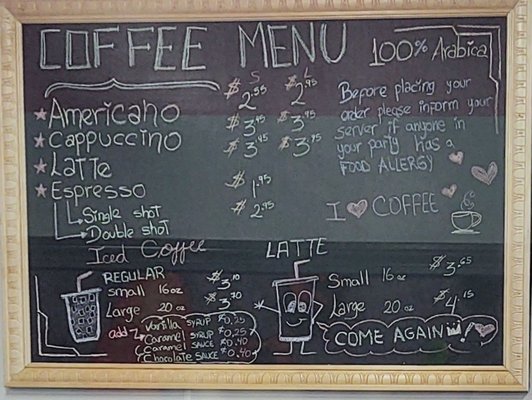 COFFEE MENU 100% Arabica
S L
Americano $2.55 $2.95
Cappuccino $3.45 $3.95
Latte $3.45 $3.95
Espresso
Single shot $1.95
Double shot $2.95
Before placing your
order please inform your
server if anyone in
your party has a
FOOD ALLERGY
I COFFEE
Iced Coffee
REGULAR
small 16oz $3.10
Large 20oz $3.70
add Vanilla SYRUP $0.25
Caramel SYRUP $0.25
Caramel SAUCE $0.40
Chocolate SAUCE $0.40
LATTE
Small 16oz $3.65
Large 20oz $4.15
COME AGAIN!